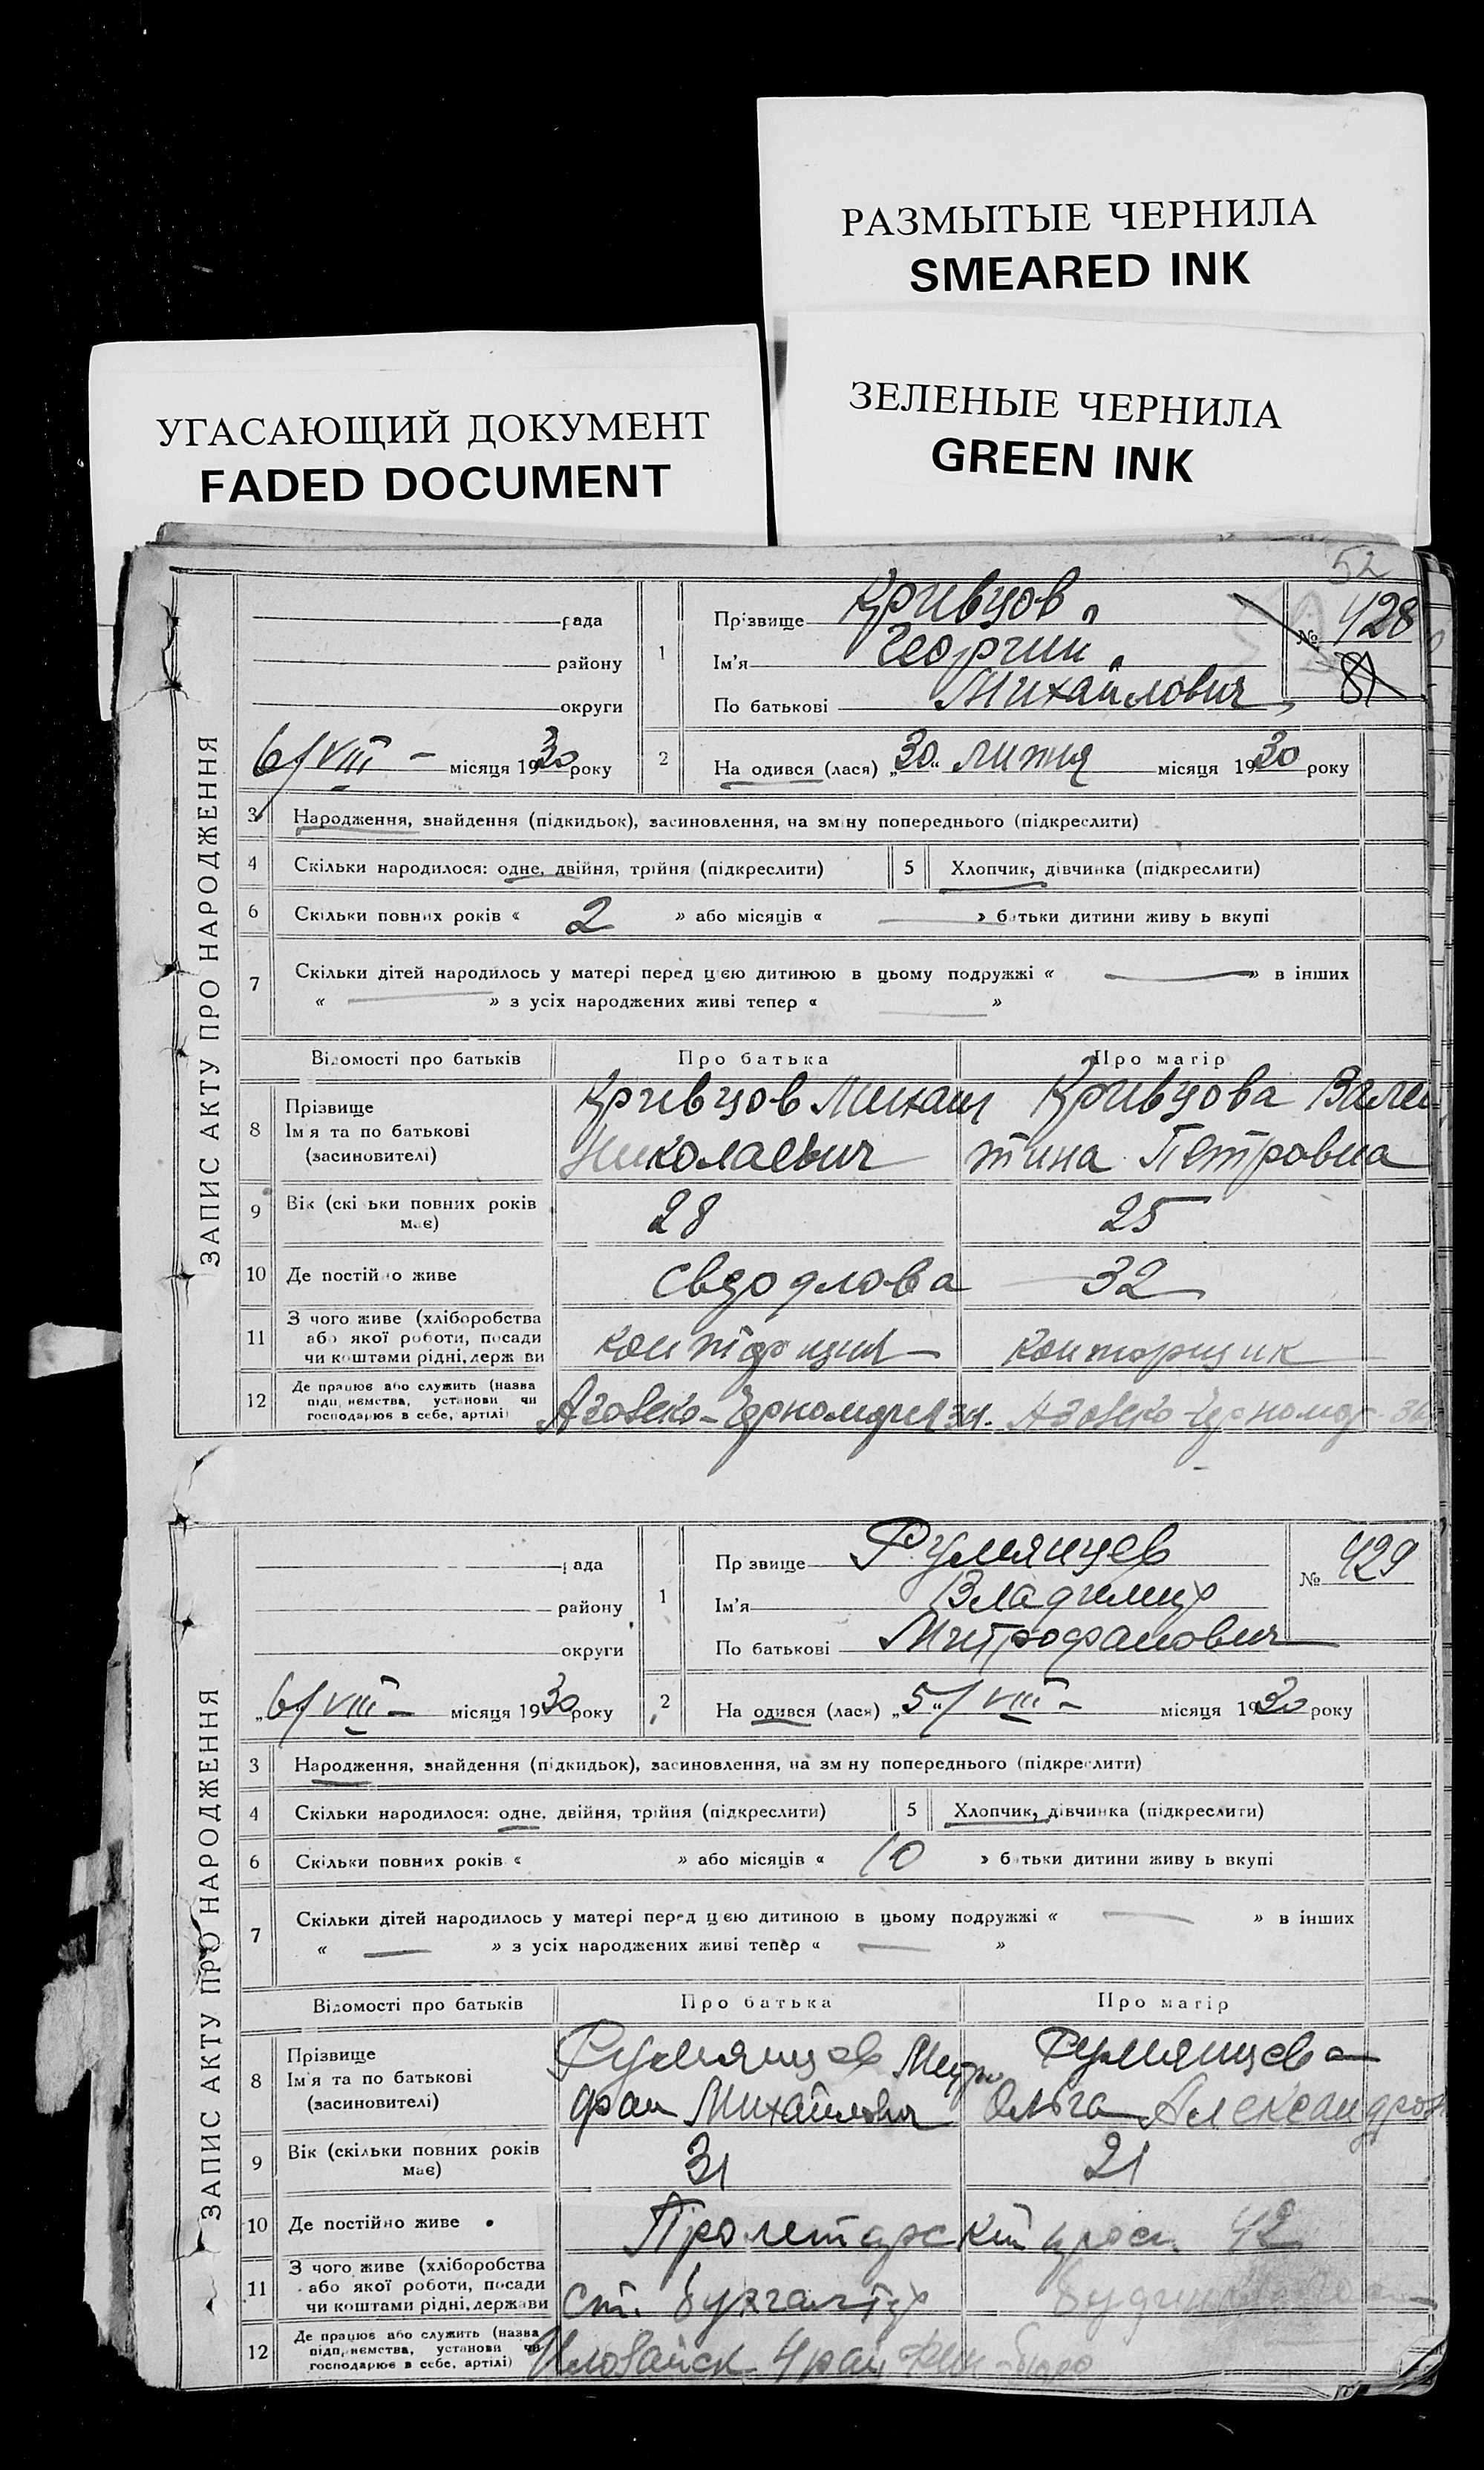 РАЗМЫТЫЕ ЧЕРНИЛА
SMEARED INK
ЗЕЛЕНЫЕ ЧЕРНИЛА
GREEN INK
УГАСАЮЩИЙ ДОКУМЕНТ
FADED DOCUMENT
52
ЗАПИС АКТУ ПРО НАРОДЖЕННЯ
рада
району
округи
6/VIII – місяця 1930 року
1
Прізвище Кривцов
Ім'я Георгий
По батькові Михайлович
№ 428
81
2 На одився (лася) „30“ липня місяця 1930 року
3 Народження, знайдення (підкидьок), засиновлення, на зміну попереднього (підкреслити)
4 Скільки народилося: одне, двійня, трійня (підкреслити) 5 Хлопчик, дівчинка (підкреслити)
6 Скільки повних років « 2 » або місяців « — » батьки дитини живу ь вкупі
7 Скільки дітей народилось у матері перед цією дитиною в цьому подружжі « — » в інших
« — » з усіх народжених живі тепер « — »
Відомості про батьків Про батька Про матір
8 Прізвище
Ім я та по батькові
(засиновителі)
Кривцов Михаил
Николаевич
Кривцова Вален
тина Петровна
9 Вік (скі ьки повних років має) 28 25
10 Де постійно живе 32
11 З чого живе (хліборобства
або якої роботи, посади
чи коштами рідні, держ ви
конторщик
12 Де працює або служить (назва
підприємства, установи чи
господарює в себе, артілі)
Азовско-Черноморск
Азовско-Черномор
ЗАПИС АКТУ ПРО НАРОДЖЕННЯ
рада
району
округи
„6/VIII – місяця 1930 року
1
Пр звище Румянцев
Ім'я Владимир
По батькові Митрофанович
№ 429
2 На одився (лася) „5“/VIII – місяця 1930 року
3 Народження, знайдення (підкидьок), засиновлення, на зм ну попереднього (підкреслити)
4 Скільки народилося: одне, двійня, трійня (підкреслити) 5 Хлопчик, дівчинка (підкреслити)
6 Скільки повних років « » або місяців « 10 » батьки дитини живу ь вкупі
7 Скільки дітей народилось у матері перед цією дитиною в цьому подружжі « — » в інших
« — » з усіх народжених живі тепер « — »
Відомості про батьків Про батька Про матір
8 Прізвище
Ім'я та по батькові
(засиновителі)
Румянцев Митро
фан Михайлович
Румянцева
Ольга Александров
9 Вік (скільки повних років має) 31 21
10 Де постійно живе Пролетарский просп. 42
11 З чого живе (хліборобства
або якої роботи, посади
чи коштами рідні, держави
ст. бухгалтер
12 Де працює або служить (назва
підприємства, установи чи
господарює в себе, артілі)
Иловайск
бюро